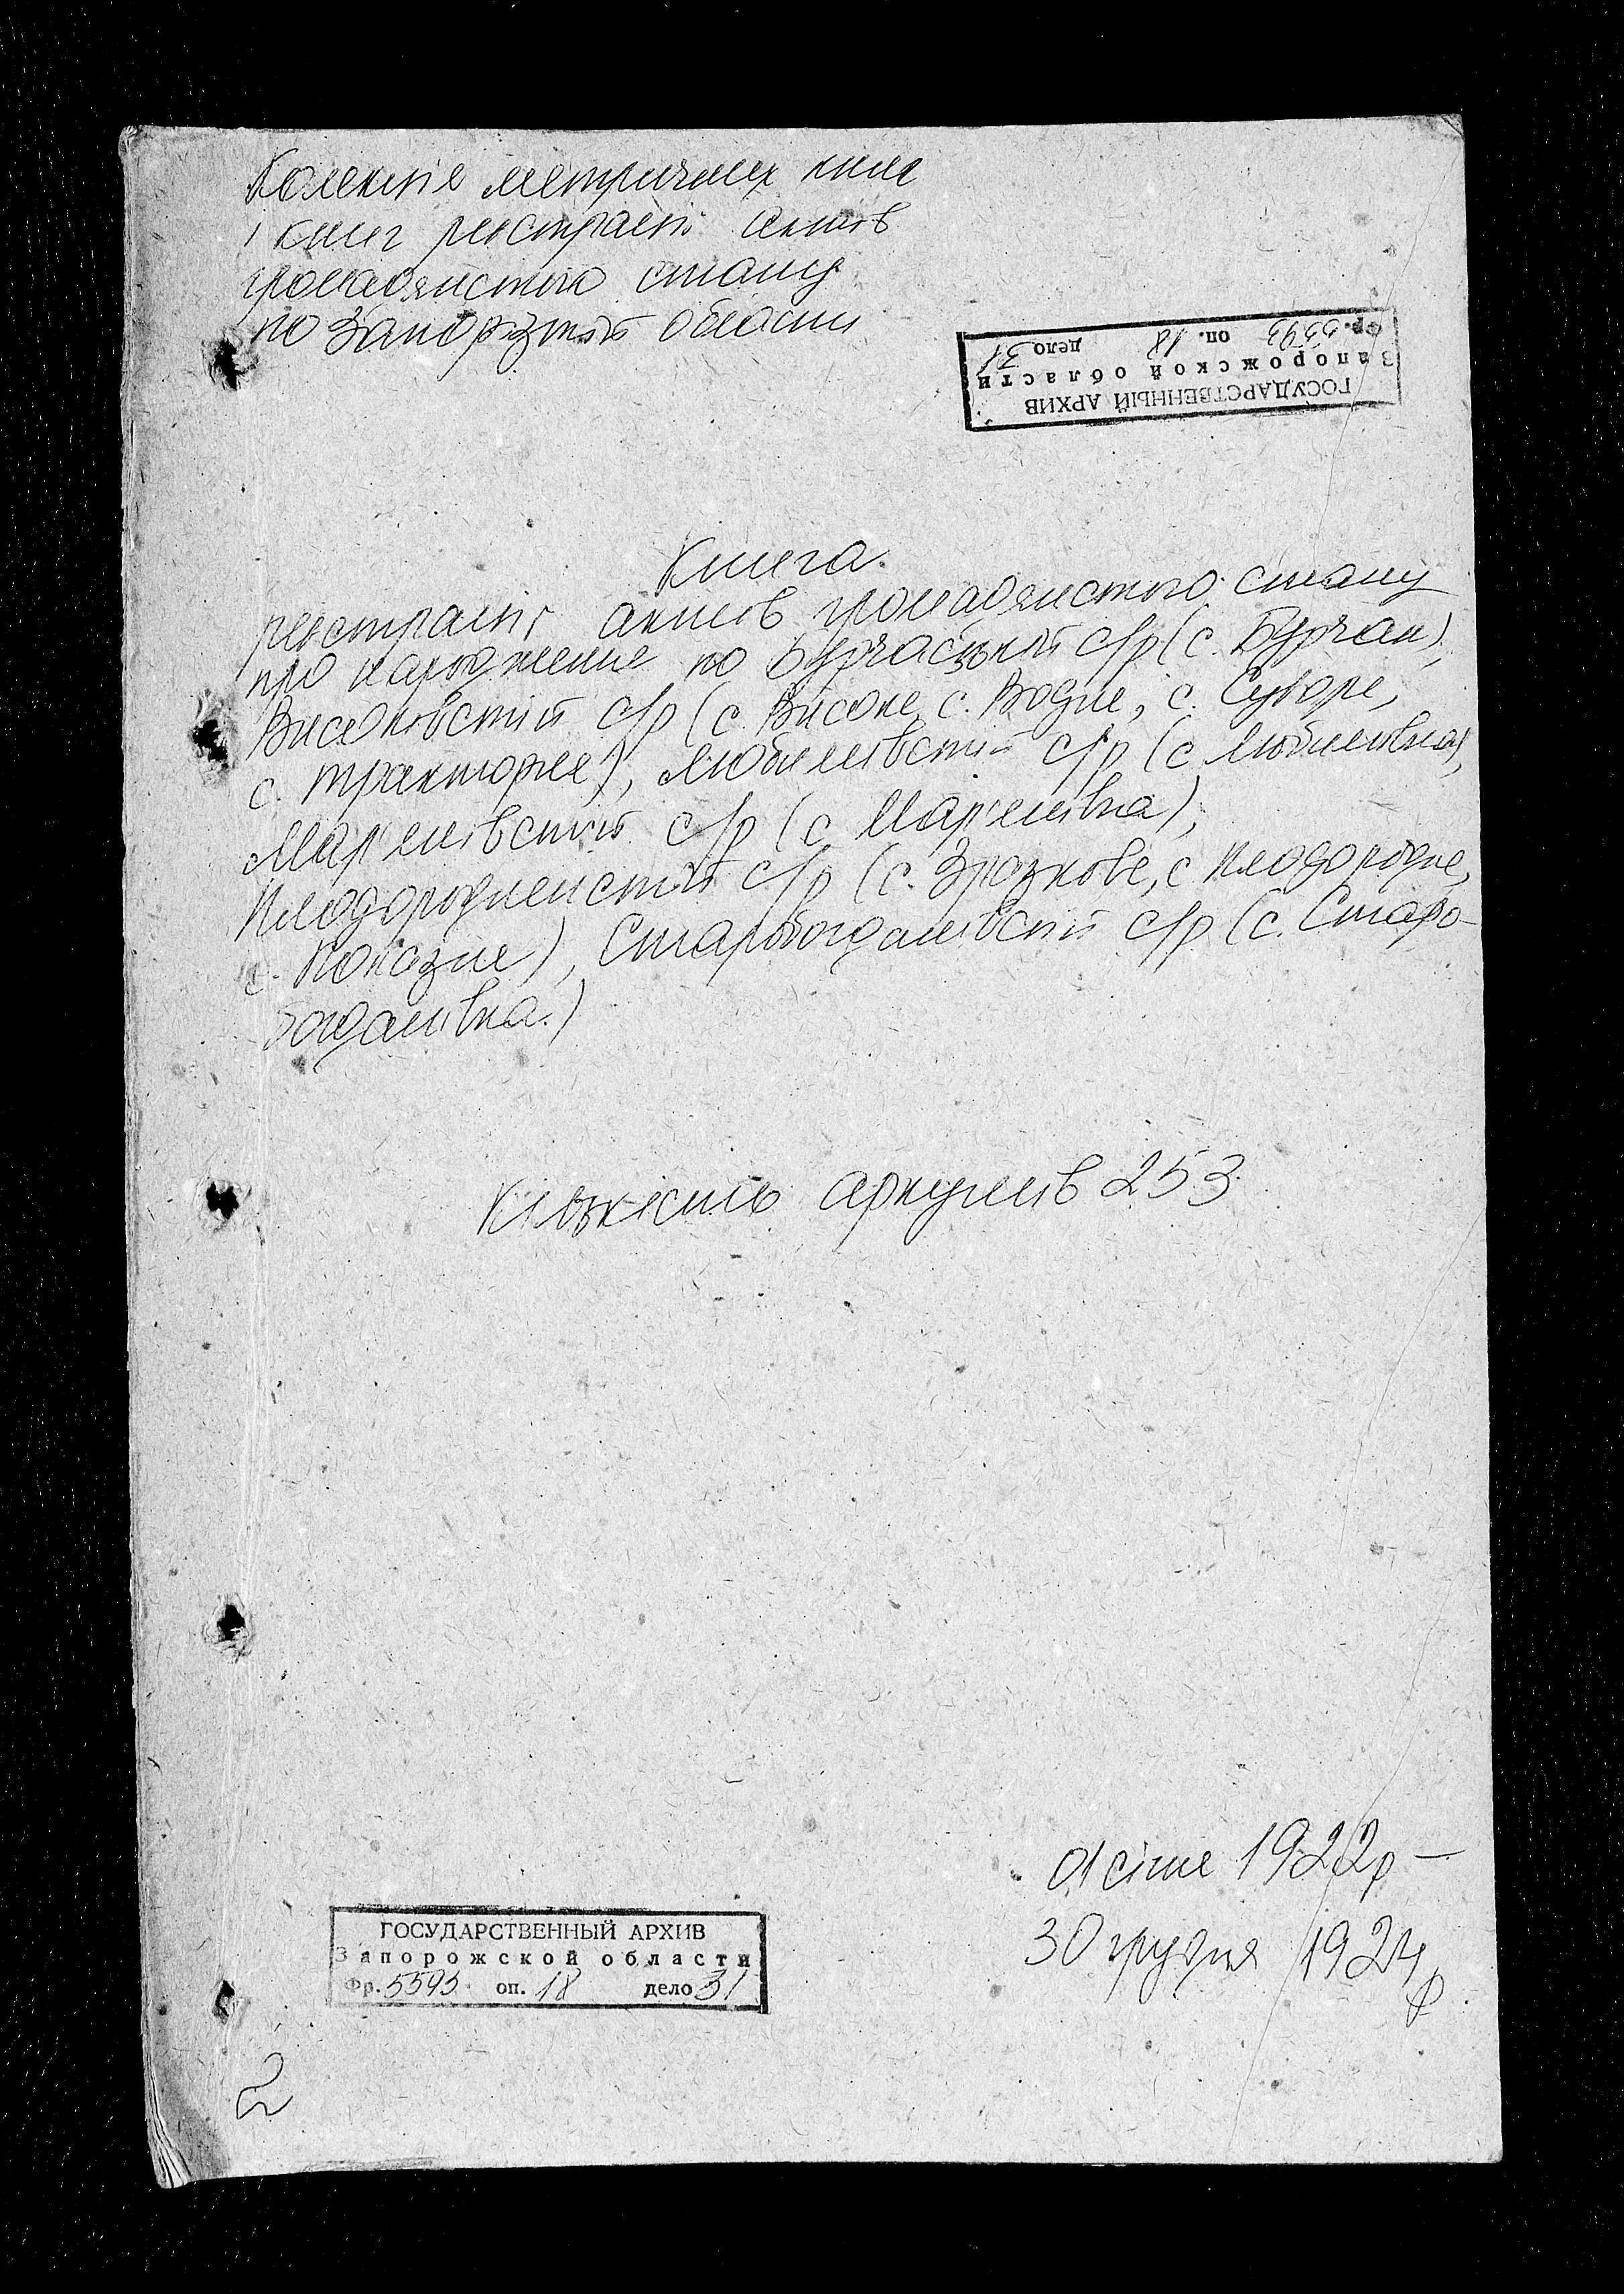 Колекція метричних книг
і книг реєстрації актів
громадянського стану
по Запорізькій області
ГОСУДАРСТВЕННЫЙ АРХИВ
Запорожской области
Фр. 5593 оп. 18 дело 31
Книга
реєстрації актів громадянського стану
про народження по Бурчацькій с/р (с. Бурчак),
Високівській с/р (с. Високе, с. Водне, с. Суворе,
с. Тракторне), Любимівській с/р (с. Любимівка),
Мар'янівській с/р (с. Мар'янівка),
Плодородненській с/р (с. Зразкове, с. Плодородне,
с. Показне), Старобогданівській с/р (с. Старо-
богданівка.)
Кількість аркушів 253
01 січня 1922р –
30 грудня 1924р
ГОСУДАРСТВЕННЫЙ АРХИВ
Запорожской области
Фр. 5593 оп. 18 дело 31
2